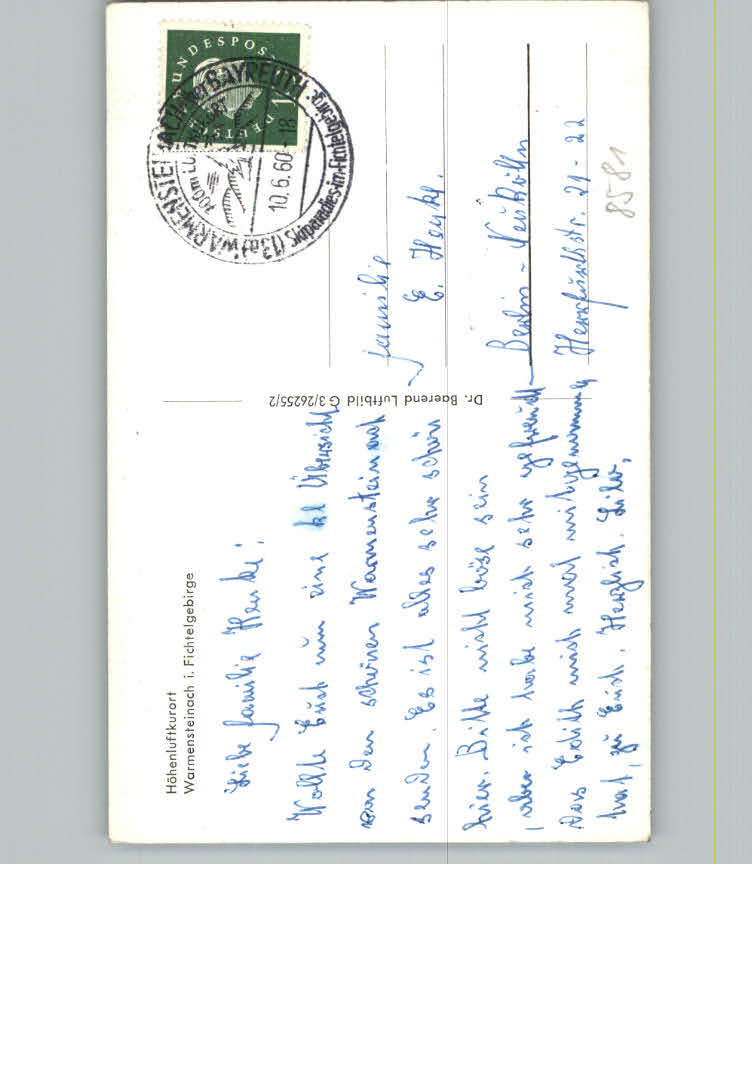 Höhenluftkurort
Warmensteinach i. Fichtelgebirge
Liebe Familie Henkel!
Wollte Euch nur eine kl Übersicht
von den schönen Warmensteinach
senden. Es ist alles sehr schön
hier. Bitte nicht böse sein
aber ich habe mich sehr gefreut
das Edith mich mal mitgenommen
hat, zu Euch. Herzlich. Lilo,
Dr. Baerend Luftbild G 3/26255/2
DEUTSCHE BUNDESPOST
(13a) WARMENSTEINACH über BAYREUTH
Skiparadies im Fichtelgebirge
10.6.60 -18
Familie
E. Henkel.
Berlin - Neukölln
Herrfurthstr. 21-22
8581